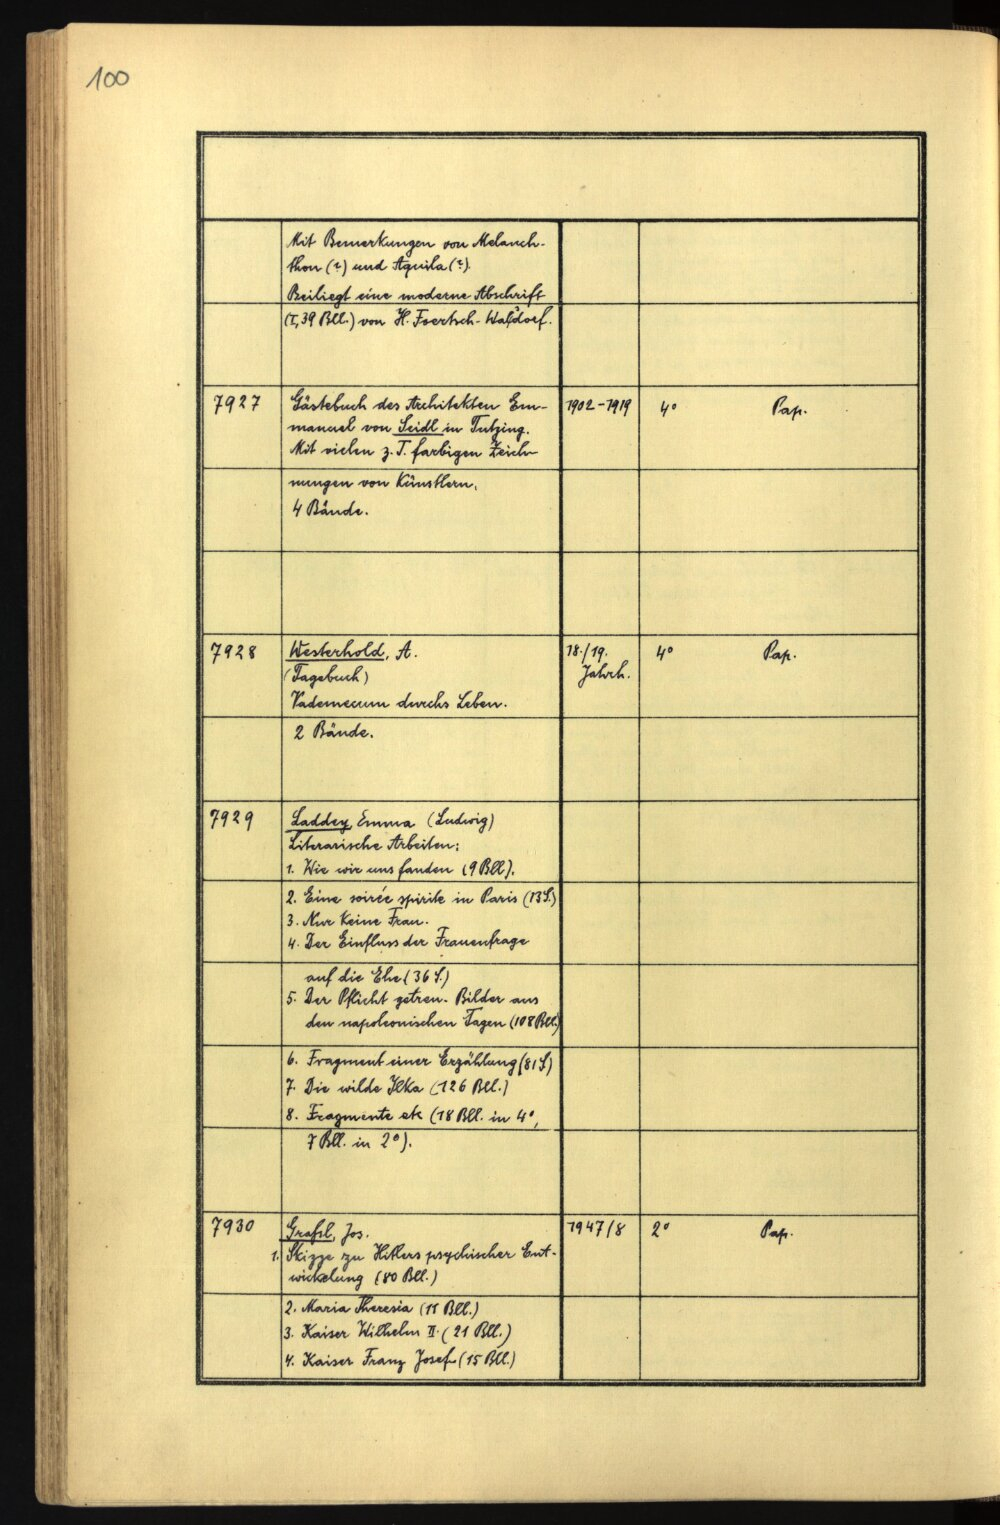 100
Mit Bemerkungen von Melanch-
thon (?) und Aquila (?).
Beiliegt eine moderne Abschrift
(I, 39 Bll.) von H. Foertsch-Waldorf.
7927 Gästebuch des Architekten Em- 1902-1919 4° Pap.
manuel von Seidl in Tutzing.
Mit vielen z. T. farbigen Zeich-
nungen von Künstlern.
4 Bände.
7928 Westerhold, A. 18./19. 4° Pap.
(Tagebuch) Jahrh.
Vademecum durchs Leben.
2 Bände.
7929 Laddey, Emma (Ludwig)
Literarische Arbeiten:
1. Wie wir uns fanden (9 Bll).
2. Eine soirée spirite in Paris (13 S.)
3. Nur keine Frau.
4. Der Einfluss der Frauenfrage
auf die Ehe (36 S.)
5. Der Pflicht getreu. Bilder aus
den napoleonischen Tagen (108 Bll.)
6. Fragment einer Erzählung (81 S)
7. Die wilde Ilka (126 Bll.)
8. Fragmente etc (18 Bll. in 4°,
7 Bll. in 2°).
7930 Graßl, Jos. 1947/8 2° Pap.
1. Skizze zu Hitlers psychischer Ent-
wickelung (80 Bll.)
2. Maria Theresia (11 Bll.)
3. Kaiser Wilhelm II. (21 Bll.)
4. Kaiser Franz Josef (15 Bll.)